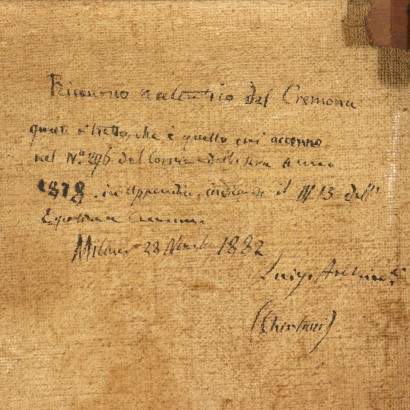 Riconosco autentico del Cremona
questo ritratto, che è quello cui accenno
nel N.º 296 del Corriere della sera Anno
1878. in appendice, il Nº 13 dell'
Esposizione Cremona.
Milano 23 Novembre 1882
Luigi